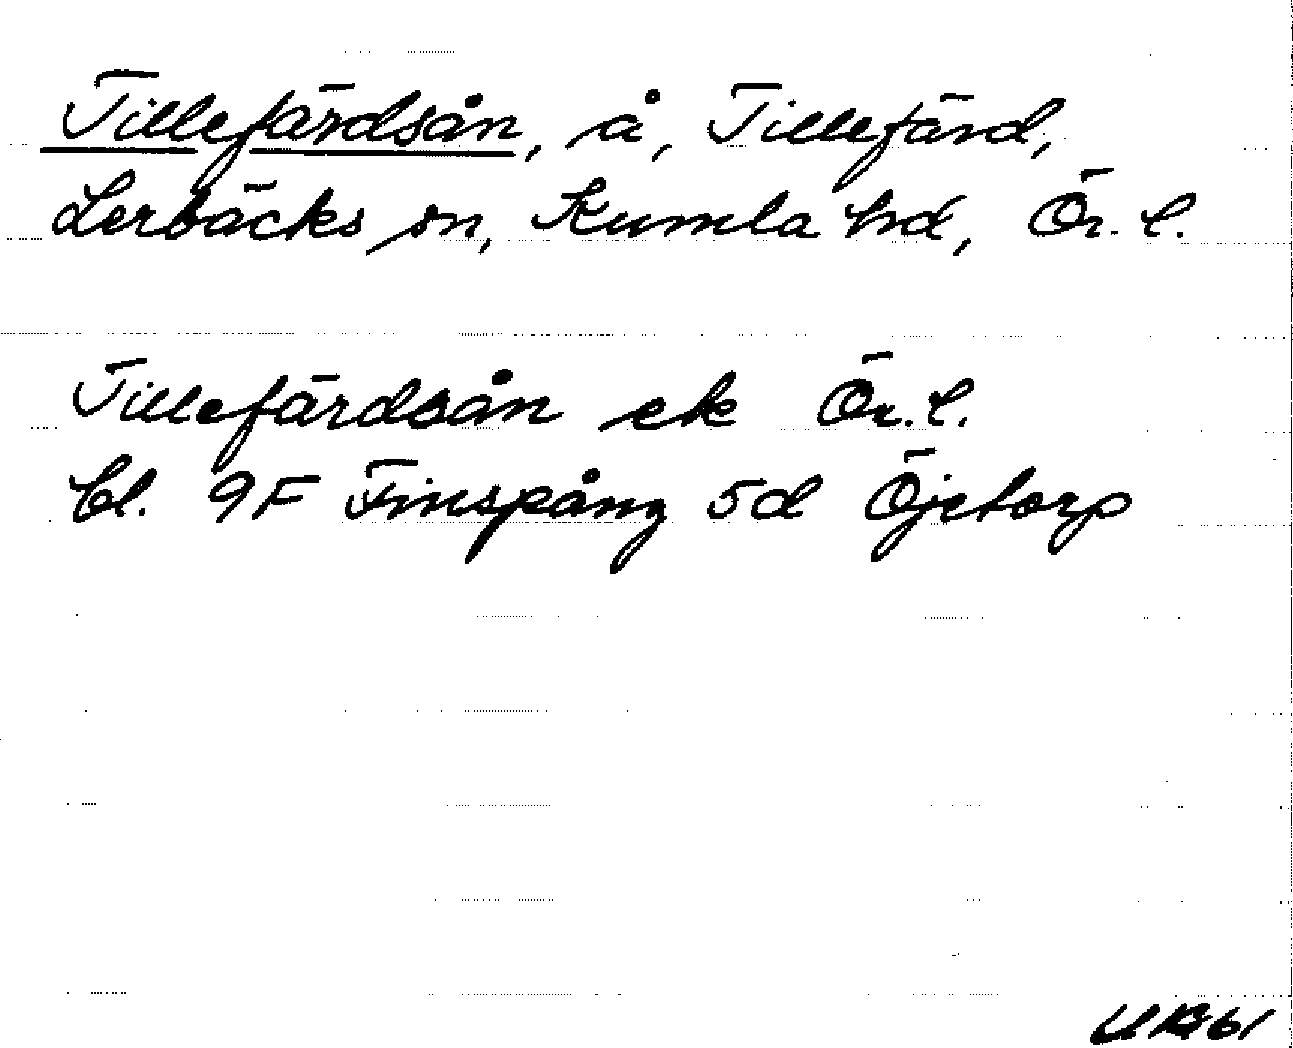 Tillefärdsån, å, Tillefärd,
Lerbäcks sn, Kumla hd, Ör. l.
Tillefärdsån ek Ör. l.
bl. 9F Finspång 5d Öjetorp